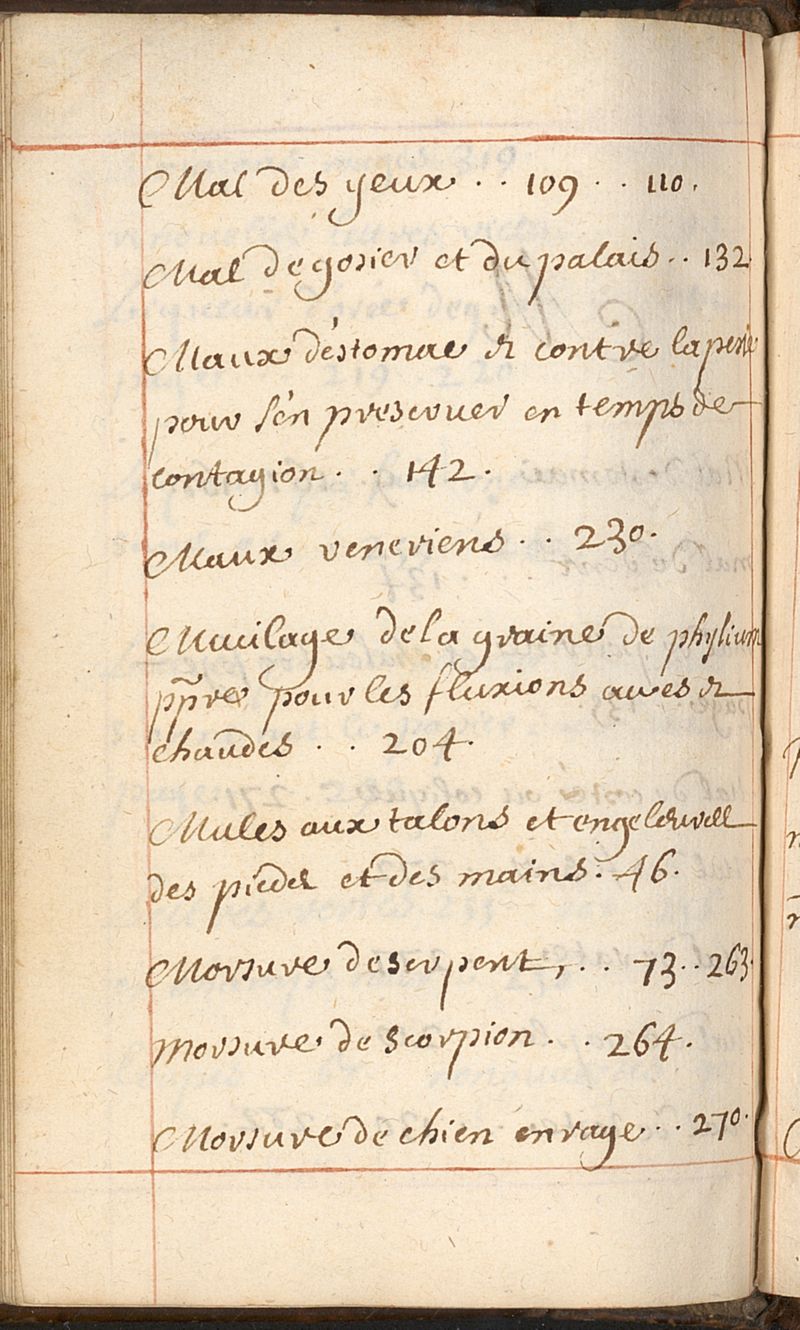 Mal des yeux . . 109 . . 110.
Mal de gosier et du palais . . 132
Maux d'estomac et contre la peste
pour s'en preserver en temps de
contagion . . 142.
Maux veneriens . . 230.
Mucilage de la graine de phylium
ppre pour les fluxions acres et
chaudes . . 204.
Mules aux talons et engelures
des piedes et des mains . 46.
Morsure de serpent, . . 73 . . 263.
morsure de scorpion . . 264.
Morsure de chien enrage . . 270.